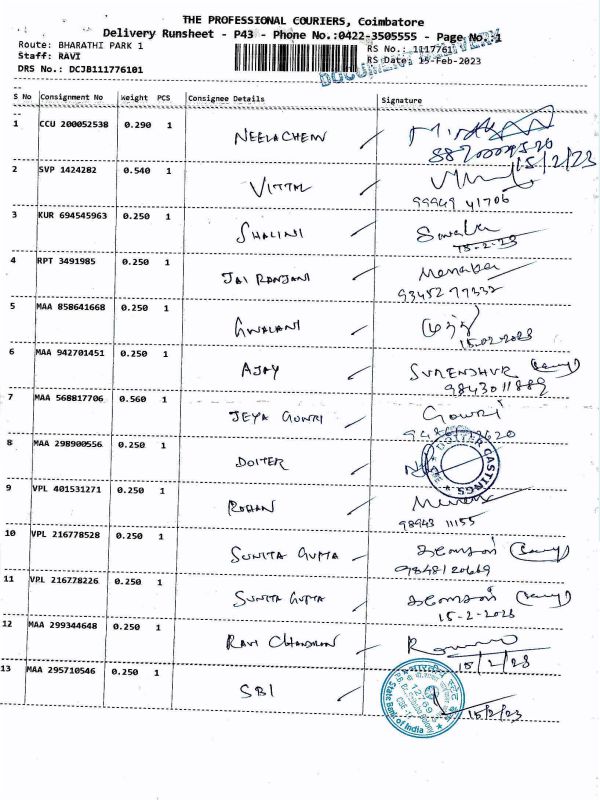 THE PROFESSIONAL COURIERS, Coimbatore
Delivery Runsheet - P43 - Phone No.:0422-3505555 - Page No.:1
Route: BHARATHI PARK 1
RS No.: 1117761
Staff: RAVI
RS Date: 15-Feb-2023
DRS No.: DCJB111776101
DOCUMENT DELIVERY
S No Consignment No Weight PCS Consignee Details Signature
1 CCU 200052538 0.290 1 NEELACHEM
15/2/23
2 SVP 1424282 0.540 1 VITTAL
99949 41706
3 KUR 694545963 0.250 1 SHALINI
15-2-23
4 RPT 3491985 0.250 1 JAI RANJANI
93452 77332
5 MAA 858641668 0.250 1 GWALANI
15-02-2023
6 MAA 942701451 0.250 1 AJAY SURENDHUR
9843011889
7 MAA 568817706 0.560 1 JEYA GOWRI Gowri
8 MAA 298900556 0.250 1 DOITER
DOITER CASTINGS
9 VPL 401531271 0.250 1 ROHAN
98943 11155
10 VPL 216778528 0.250 1 SUNITA GUPTA
9848120669
11 VPL 216778226 0.250 1 SUNITA GUPTA
15-2-2023
12 MAA 299344648 0.250 1 RAVI CHANDRAN
15/2/23
13 MAA 295710546 0.250 1 SBI
State Bank of India
15/2/23